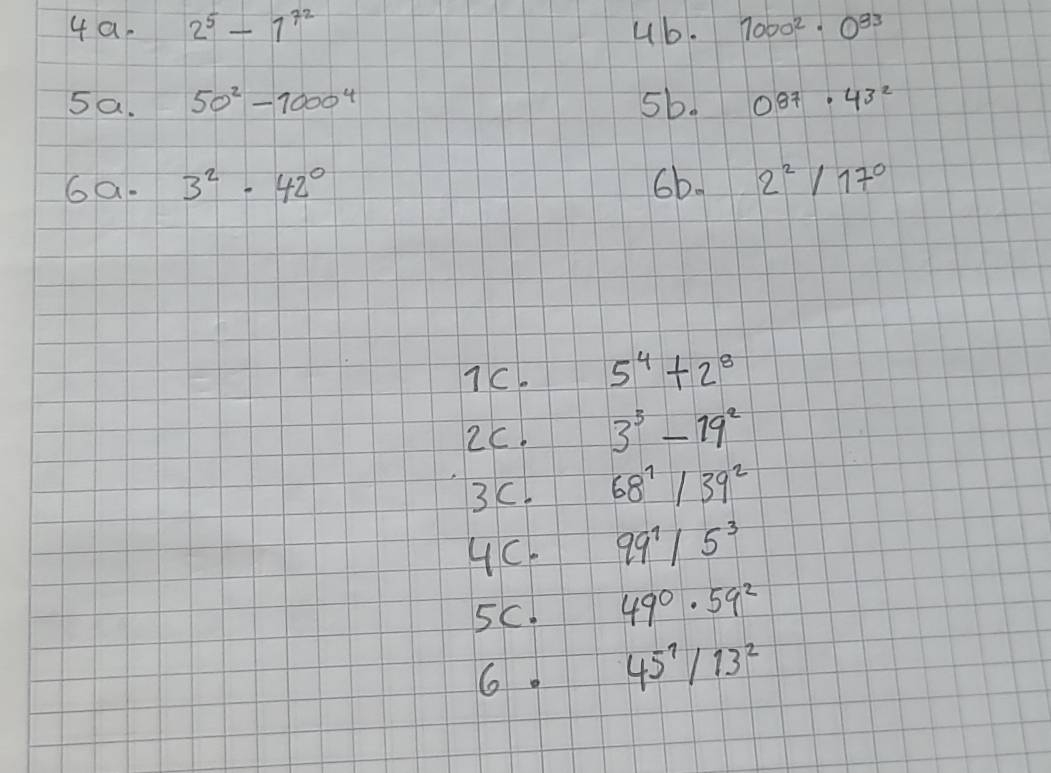 4a. 2⁵ - 1⁷² 4b. 1000² · 0⁹³
5a. 50² - 1000⁴ 5b. 0⁸⁷ · 43²
6a. 3² · 42⁰ 6b. 2² / 17⁰
1c. 5⁴ + 2⁸
2c. 3³ - 19²
3c. 68¹ / 39²
4c. 99¹ / 5³
5c. 49⁰ · 59²
6. 45¹ / 13²